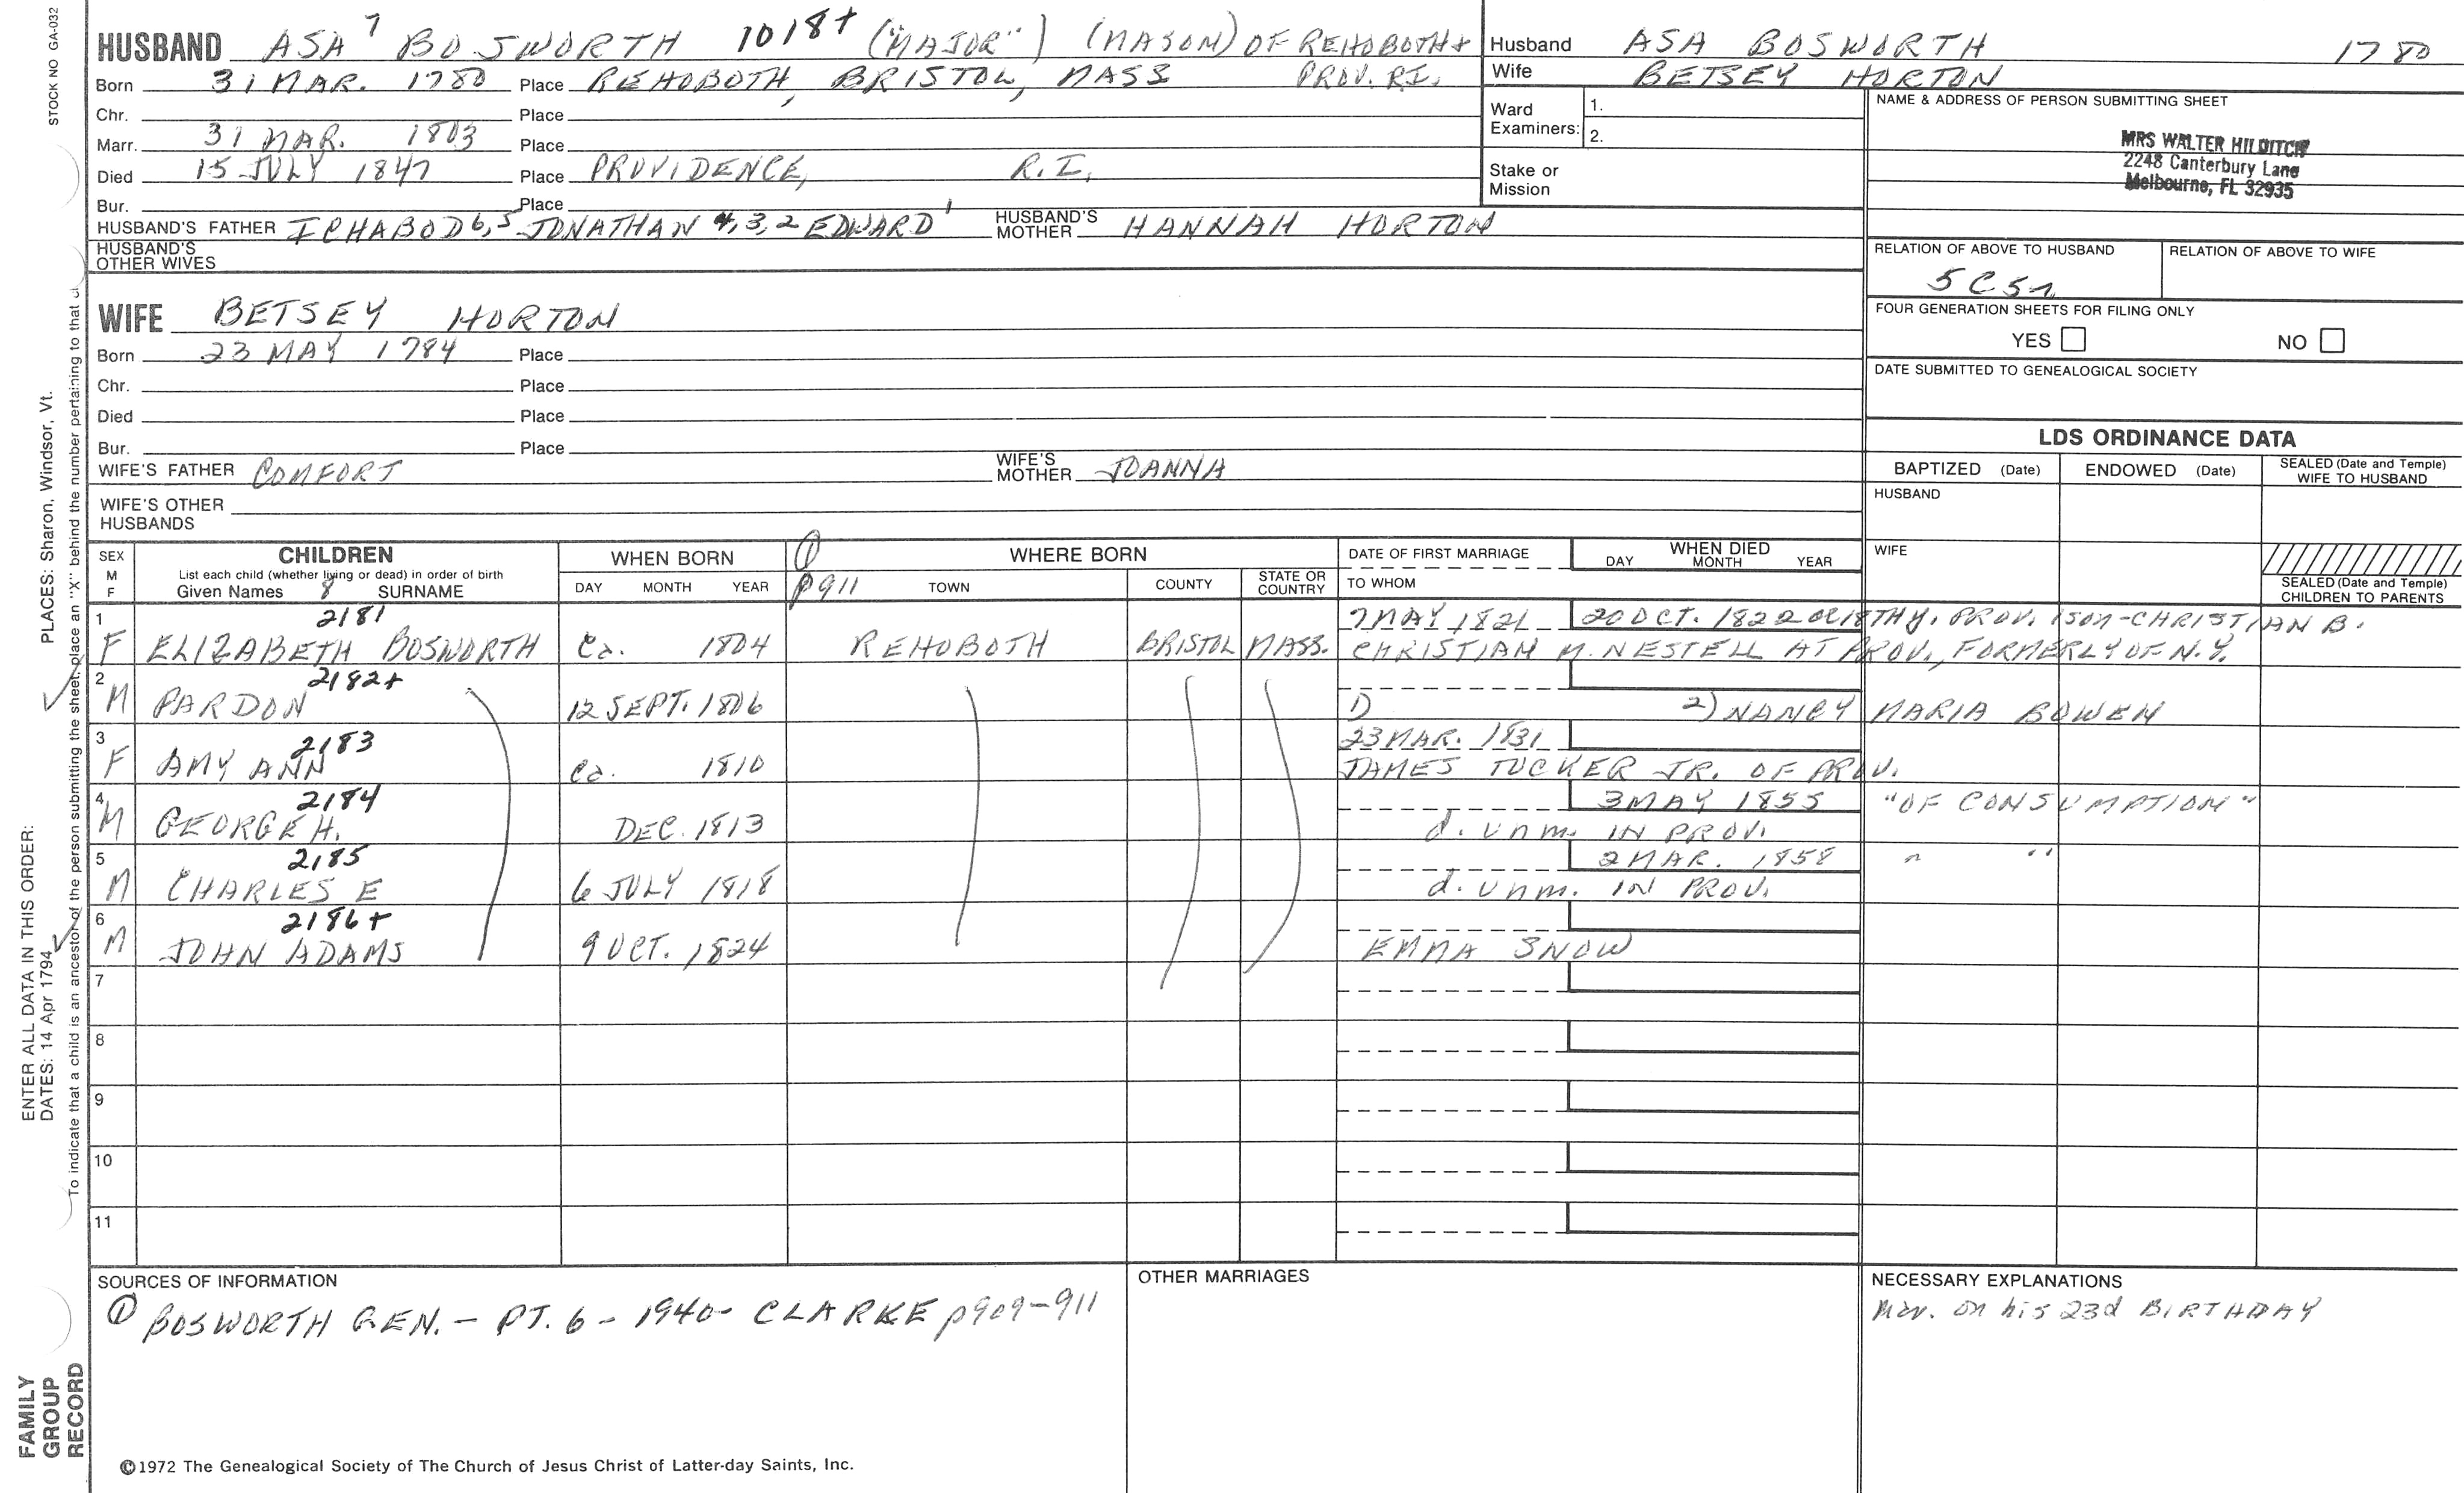 STOCK NO GA-032
HUSBAND ASA 7 BOSWORTH 1018+ ("MAJOR") (MASON) OF REHOBOTH &
Born 31 MAR. 1780 Place REHOBOTH, BRISTOL, MASS PROV. R.I.
Chr. Place
Marr. 31 MAR. 1803 Place
Died 15 JULY 1847 Place PROVIDENCE, R.I.
Bur. Place
HUSBAND'S FATHER ICHABOD 6,5 JONATHAN 4,3,2 EDWARD 1 HUSBAND'S MOTHER HANNAH HORTON
HUSBAND'S OTHER WIVES
Husband ASA BOSWORTH 1780
Wife BETSEY HORTON
Ward Examiners: 1.
2.
Stake or Mission
NAME & ADDRESS OF PERSON SUBMITTING SHEET
MRS WALTER HILDITCH
2248 Canterbury Lane
Melbourne, FL 32935
RELATION OF ABOVE TO HUSBAND RELATION OF ABOVE TO WIFE
5C5r
FOUR GENERATION SHEETS FOR FILING ONLY
YES NO
DATE SUBMITTED TO GENEALOGICAL SOCIETY
WIFE BETSEY HORTON
Born 23 MAY 1784 Place
Chr. Place
Died Place
Bur. Place
WIFE'S FATHER COMFORT WIFE'S MOTHER JOANNA
WIFE'S OTHER HUSBANDS
LDS ORDINANCE DATA
BAPTIZED (Date) ENDOWED (Date) SEALED (Date and Temple) WIFE TO HUSBAND
HUSBAND
WIFE
SEALED (Date and Temple) CHILDREN TO PARENTS
SEX M F CHILDREN WHEN BORN ① WHERE BORN DATE OF FIRST MARRIAGE WHEN DIED
List each child (whether living or dead) in order of birth
Given Names 8 SURNAME DAY MONTH YEAR p911 TOWN COUNTY STATE OR COUNTRY TO WHOM DAY MONTH YEAR
1 2181 7 MAY 1821 20 OCT. 1822 OR 18THY. PROV. 1SON-CHRISTIAN B.
F ELIZABETH BOSWORTH Ca. 1804 REHOBOTH BRISTOL MASS. CHRISTIAN M. NESTELL AT PROV., FORMERLY OF N.Y.
2 2182+
M PARDON 12 SEPT. 1806 1) 2) NANCY MARIA BOWEN
3 2183 23 MAR. 1831
F AMY ANN Ca. 1810 JAMES TUCKER JR. OF PROV.
4 2184 3 MAY 1855 "OF CONSUMPTION"
M GEORGE H. DEC. 1813 d. unm. IN PROV.
5 2185 2 MAR. 1858 " "
M CHARLES E 6 JULY 1818 d. unm. IN PROV.
6 2186+
M JOHN ADAMS 9 OCT. 1824 EMMA SNOW
7
8
9
10
11
SOURCES OF INFORMATION
① BOSWORTH GEN. - PT. 6 - 1940 - CLARKE p909-911
OTHER MARRIAGES
NECESSARY EXPLANATIONS
Mar. on his 23d BIRTHDAY
©1972 The Genealogical Society of The Church of Jesus Christ of Latter-day Saints, Inc.
FAMILY GROUP RECORD
ENTER ALL DATA IN THIS ORDER:
DATES: 14 Apr 1794
PLACES: Sharon, Windsor, Vt.
To indicate that a child is an ancestor of the person submitting the sheet, place an "X" behind the number pertaining to that